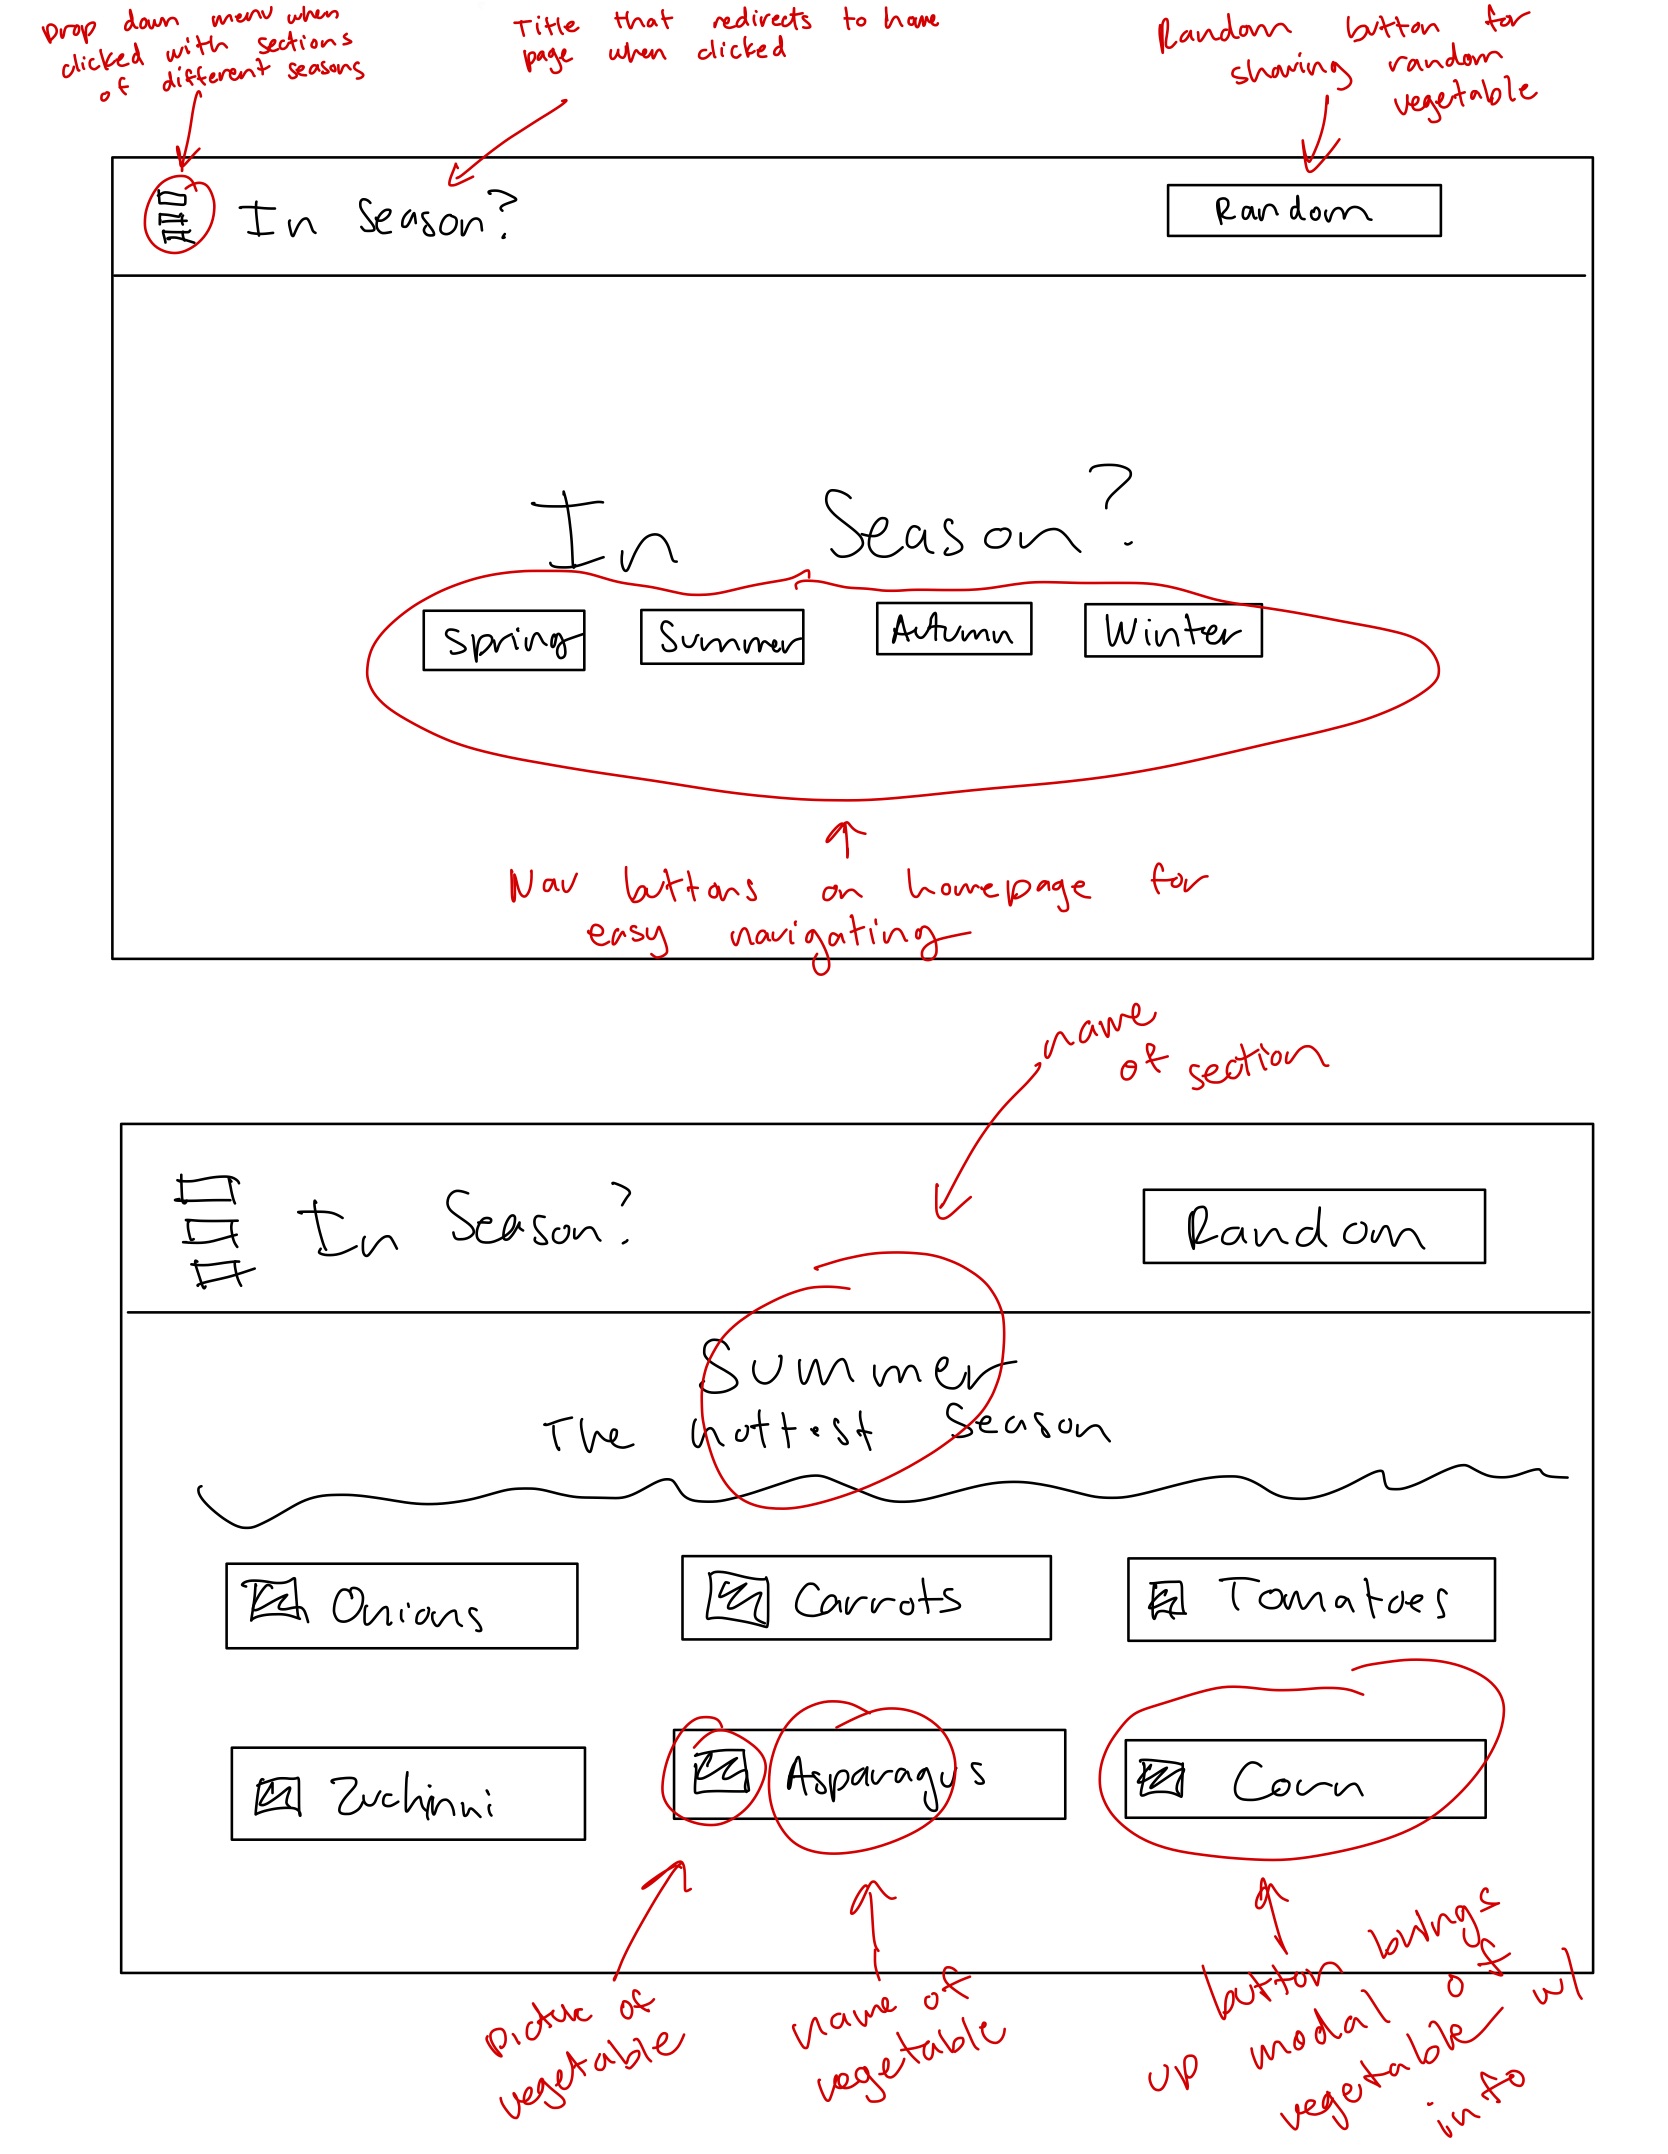 Drop down menu when
clicked with sections
of different seasons
Title that redirects to home
page when clicked
Random button for
showing random
vegetable
In Season?
Random
In Season?
Spring
Summer
Autumn
Winter
Nav buttons on homepage for
easy navigating
name
of section
In Season?
Random
Summer
The hottest Season
Onions
Carrots
Tomatoes
Zuchinni
Asparagus
Corn
picture of
vegetable
name of
vegetable
button brings
up modal of
vegetable w/
info